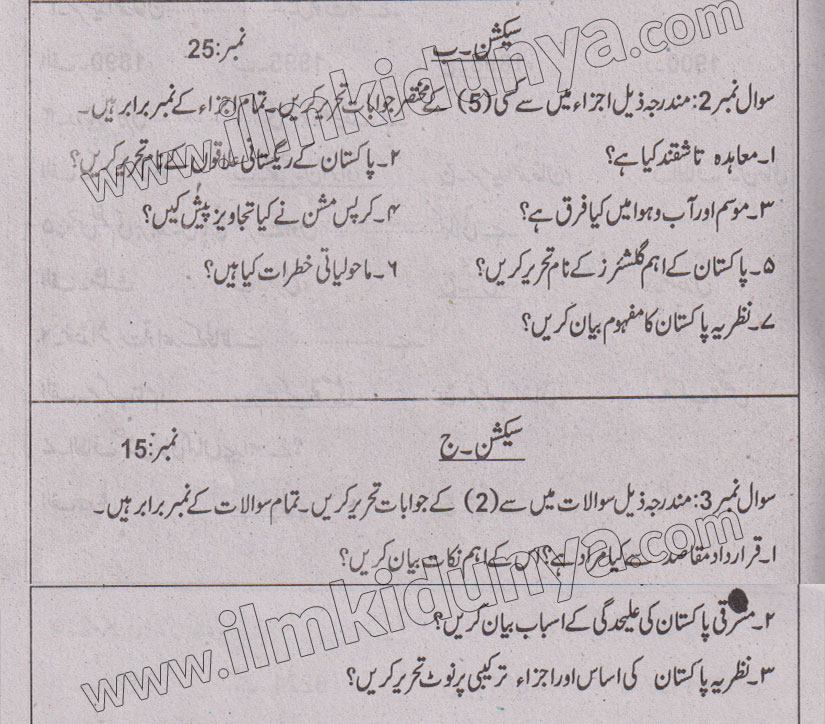 سیکشن۔ب نمبر:25
سوال نمبر2: مندرجہ ذیل اجزاء میں سے کسی (5) کے مختصر جوابات تحریر کریں۔ تمام اجزاء کے نمبر برابر ہیں۔
۱۔ معاہدہ تاشقند کیا ہے؟ ۲۔ پاکستان کے ریگستانی علاقوں کے نام تحریر کریں؟
۳۔ موسم اور آب و ہوا میں کیا فرق ہے؟ ۴۔ کرپس مشن نے کیا تجاویز پیش کیں؟
۵۔ پاکستان کے اہم گلشئرز کے نام تحریر کریں؟ ۶۔ ماحولیاتی خطرات کیا ہیں؟
۷۔ نظریہ پاکستان کا مفہوم بیان کریں؟
سیکشن۔ج نمبر:15
سوال نمبر3: مندرجہ ذیل سوالات میں سے (2) کے جوابات تحریر کریں۔ تمام سوالات کے نمبر برابر ہیں۔
۱۔ قرارداد مقاصد سے کیا مراد ہے؟ اس کے اہم نکات بیان کریں؟
۲۔ مشرقی پاکستان کی علیحدگی کے اسباب بیان کریں؟
۳۔ نظریہ پاکستان کی اساس اور اجزاء ترکیبی پر نوٹ تحریر کریں؟
www.ilmkidunya.com
www.ilmkidunya.com